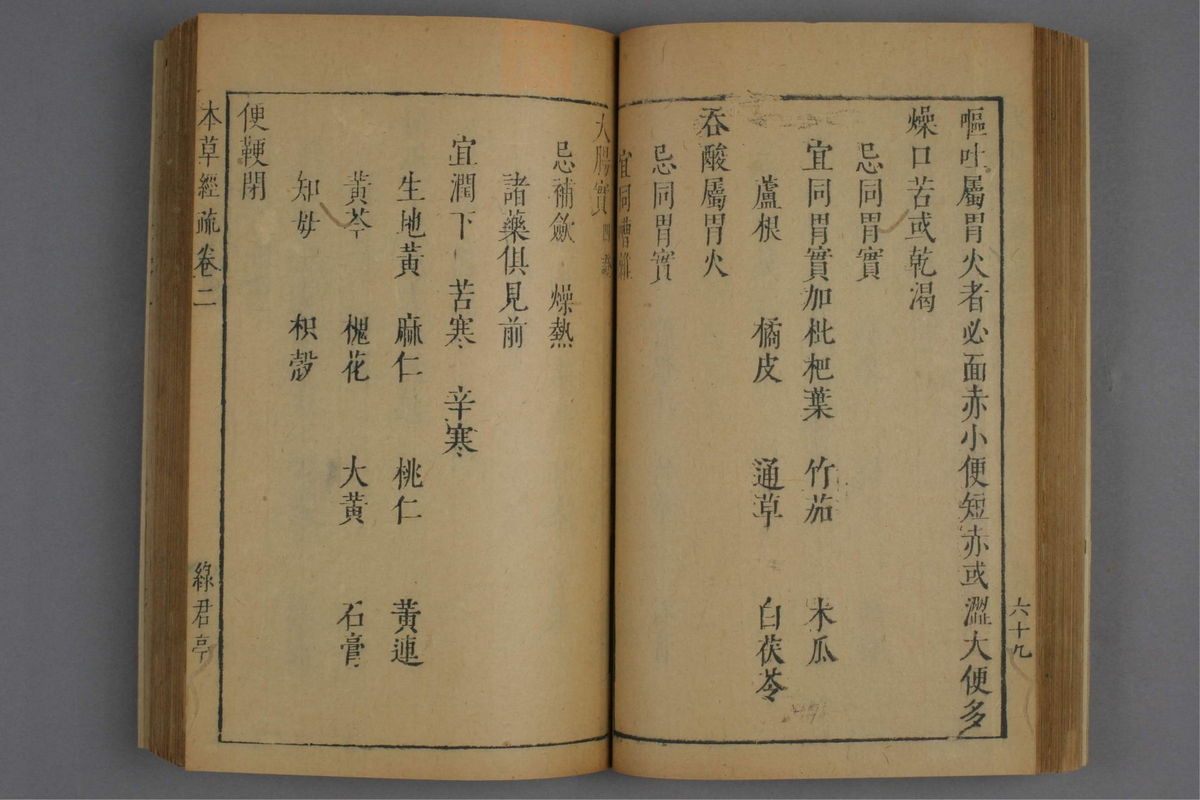 嘔吐屬胃火者必面赤小便短赤或澀大便多
燥口苦或乾渴
忌同胃實
宜同胃實加枇杷葉 竹茹 木瓜
蘆根 橘皮 通草 白茯苓
吞酸屬胃火
忌同胃實
宜同嘈雜
六十九
大腸實四證
忌補斂 燥熱
諸藥俱見前
宜潤下 苦寒 辛寒
生地黃 麻仁 桃仁 黃連
黃芩 槐花 大黃 石膏
知母 枳殼
便鞕閉
本草經疏卷二
綠君亭